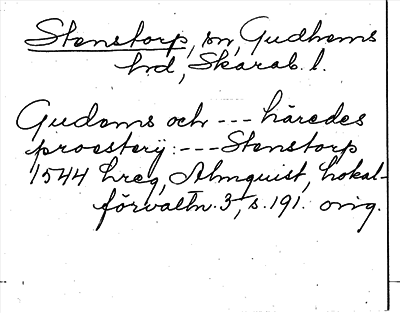 Stenstorp, sn, Gudhems
hd, Skarab. l.
Gudoms och --- häredes
proestery: --- Stenstorp
1544 hreg, Almquist, Lokal-
förvaltn. 3, s. 191. orig.